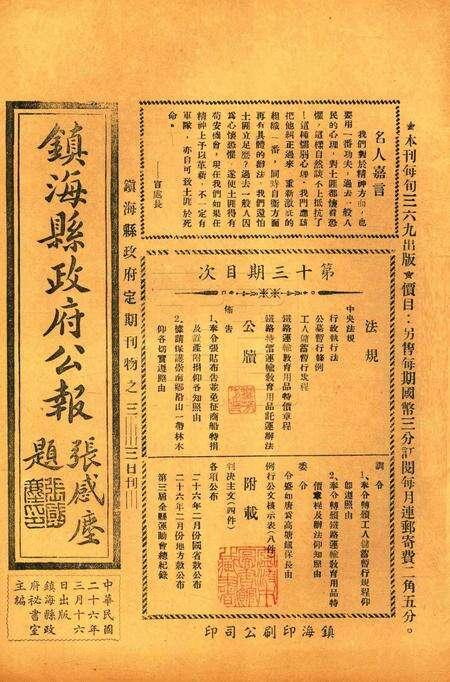 ★本刊每旬三六九出版★價目：另售每期國幣三分訂閱每月連郵寄費二角五分。
名人嘉言
我們對於精神方面，也
要用一番功夫，過去一般人
民的心理，對土匪都懷着恐
懼，這樣自然談不上抵抗了
！這種懦弱心理，我們應該
把他糾正過來，重新激底的
組織一番，同時自衛方面
再有具體的辦法，我們還怕
土匪立足麼？過去一般人因
爲心懷恐懼，遂使土匪得有
苟安機會，現在我們如果在
精神上予以革新，不一定有
軍隊，亦自可致土匪於死
命。
第十三期目次
法規
中央法規
行政執行法
公墓暫行條例
工人儲蓄暫行規程
鐵路運輸教育用品特價章程
鐵路特價運輸教育用品託運辦法
公牘
佈告
1.奉令張貼布告並免征商船特捐
及置產附捐仰各知照由
2.據請保護崇南鄉沿山一帶林木
仰各切實遵照由
訓令
1.奉令轉發工人儲蓄暫行規程仰
即遵照由
2.奉令轉發鐵路運輸教育用品特
價章程及辦法仰知照由
委令
例行公文摘示表（八件）
附載
判決主文（四件）
各項公布
二十六年二月份國省款公布
二十六年二月份地方款公布
第三屆全縣運動會總紀錄
鎮海印刷公司印
鎮海縣政府定期刊物之三……三日刊……
鎮海縣政府公報
張感塵題
中華民國
二十六年
三月十六
日出版
鎮海縣政
府祕書室
主編